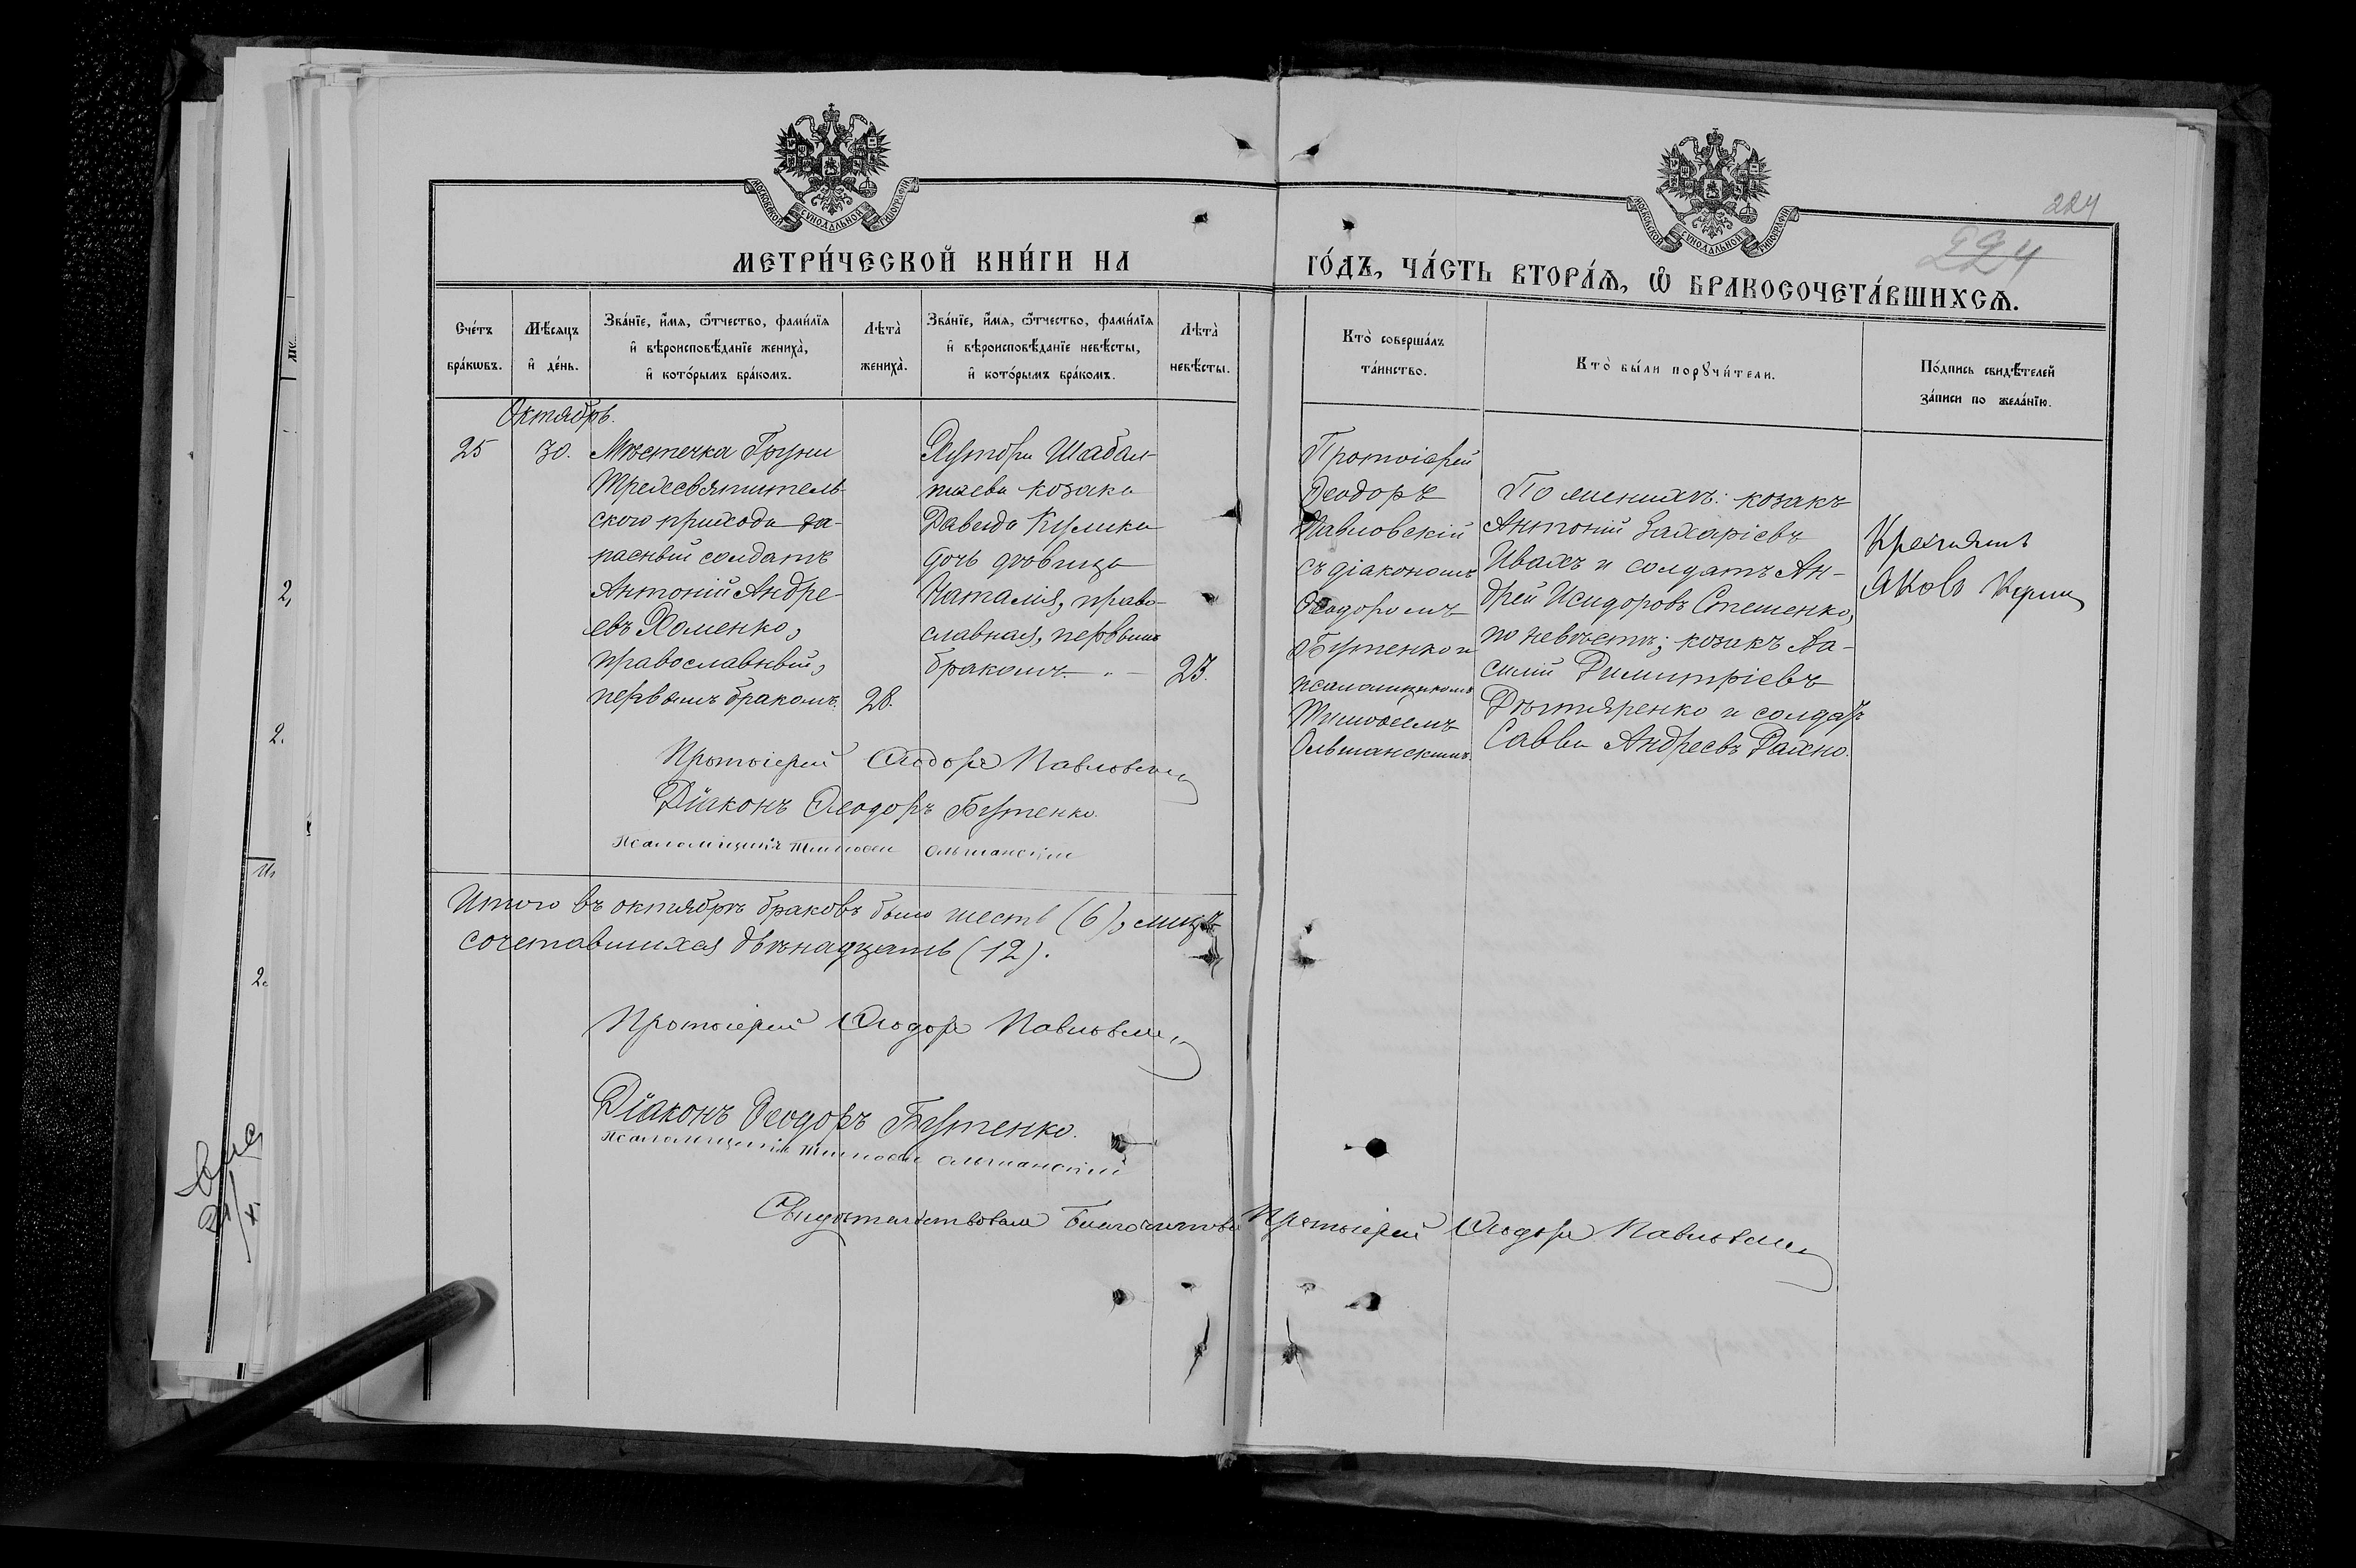 224
224
МОСКОВСКОЙ СѴНОДАЛЬНОЙ ТИПОГРАФІИ
МОСКОВСКОЙ СѴНОДАЛЬНОЙ ТИПОГРАФІИ
МЕТРИ́ЧЕСКОЙ КНИ́ГИ НА ГО́ДЪ, ЧА́СТЬ ВТОРА́Ѧ, Ѽ БРАКОСОЧЕТА́ВШИХСѦ.
Сче́тъ
бра́кѡвъ.
Мѣ́сяцъ
и҆ де́нь.
Зва́нїе, и҆́мя, ѻ҆́тчество, фами́лїя
и҆ вѣроисповѣ́данїе жениха̀,
и҆ кото́рымъ бра́комъ.
Лѣта̀
жениха̀.
Зва́нїе, и҆́мя, ѻ҆́тчество, фами́лїя
и҆ вѣроисповѣ́данїе невѣ́сты,
и҆ кото́рымъ бра́комъ.
Лѣта̀
невѣ́сты.
Кто̀ соверша́лъ
та́инство.
Кто̀ бы́ли порꙋчи́тели.
По́дпись свидѣ́телей
за́писи по жела́нїю.
Октябрь.
25
30.
Мѣстечка Груни
Трехсвятитель-
скаго прихода за-
пасный солдатъ
Антоній Андре-
евъ Хоменко,
православный,
первымъ бракомъ.
28.
Хутора Шабал-
таева козака
Давида Кулика
дочь дѣвица
Наталія, право-
славная, первымъ
бракомъ.
23.
Протоіерей
Ѳеодоръ
Павловскій
съ діакономъ
Ѳеодоромъ
Бутенко и
псаломщикомъ
Тимоѳеемъ
Ольшанскимъ.
По женихѣ: козакъ
Антоній Захаріевъ
Ивахъ и солдатъ Ан-
дрей Исидоровъ Стешенко,
по невѣстѣ; козакъ Ва-
силій Димитріевъ
Дегтяренко и солдатъ
Савва Андреевъ Рахно.
Яковъ
Протоіерей Ѳеодоръ Павловскій
Діаконъ Ѳеодоръ Бутенко.
Псаломщикъ Тимоѳей Ольшанскій
Итого въ октябрѣ браковъ было шесть (6), лицъ
сочетавшихся двѣнадцать (12).
Протоіерей Ѳеодоръ Павловскій
Діаконъ Ѳеодоръ Бутенко.
Псаломщикъ Тимоѳей Ольшанскій
Свидѣтельствовалъ Благочинный Протоіерей Ѳеодоръ Павловскій
2,
2.
11,
2.